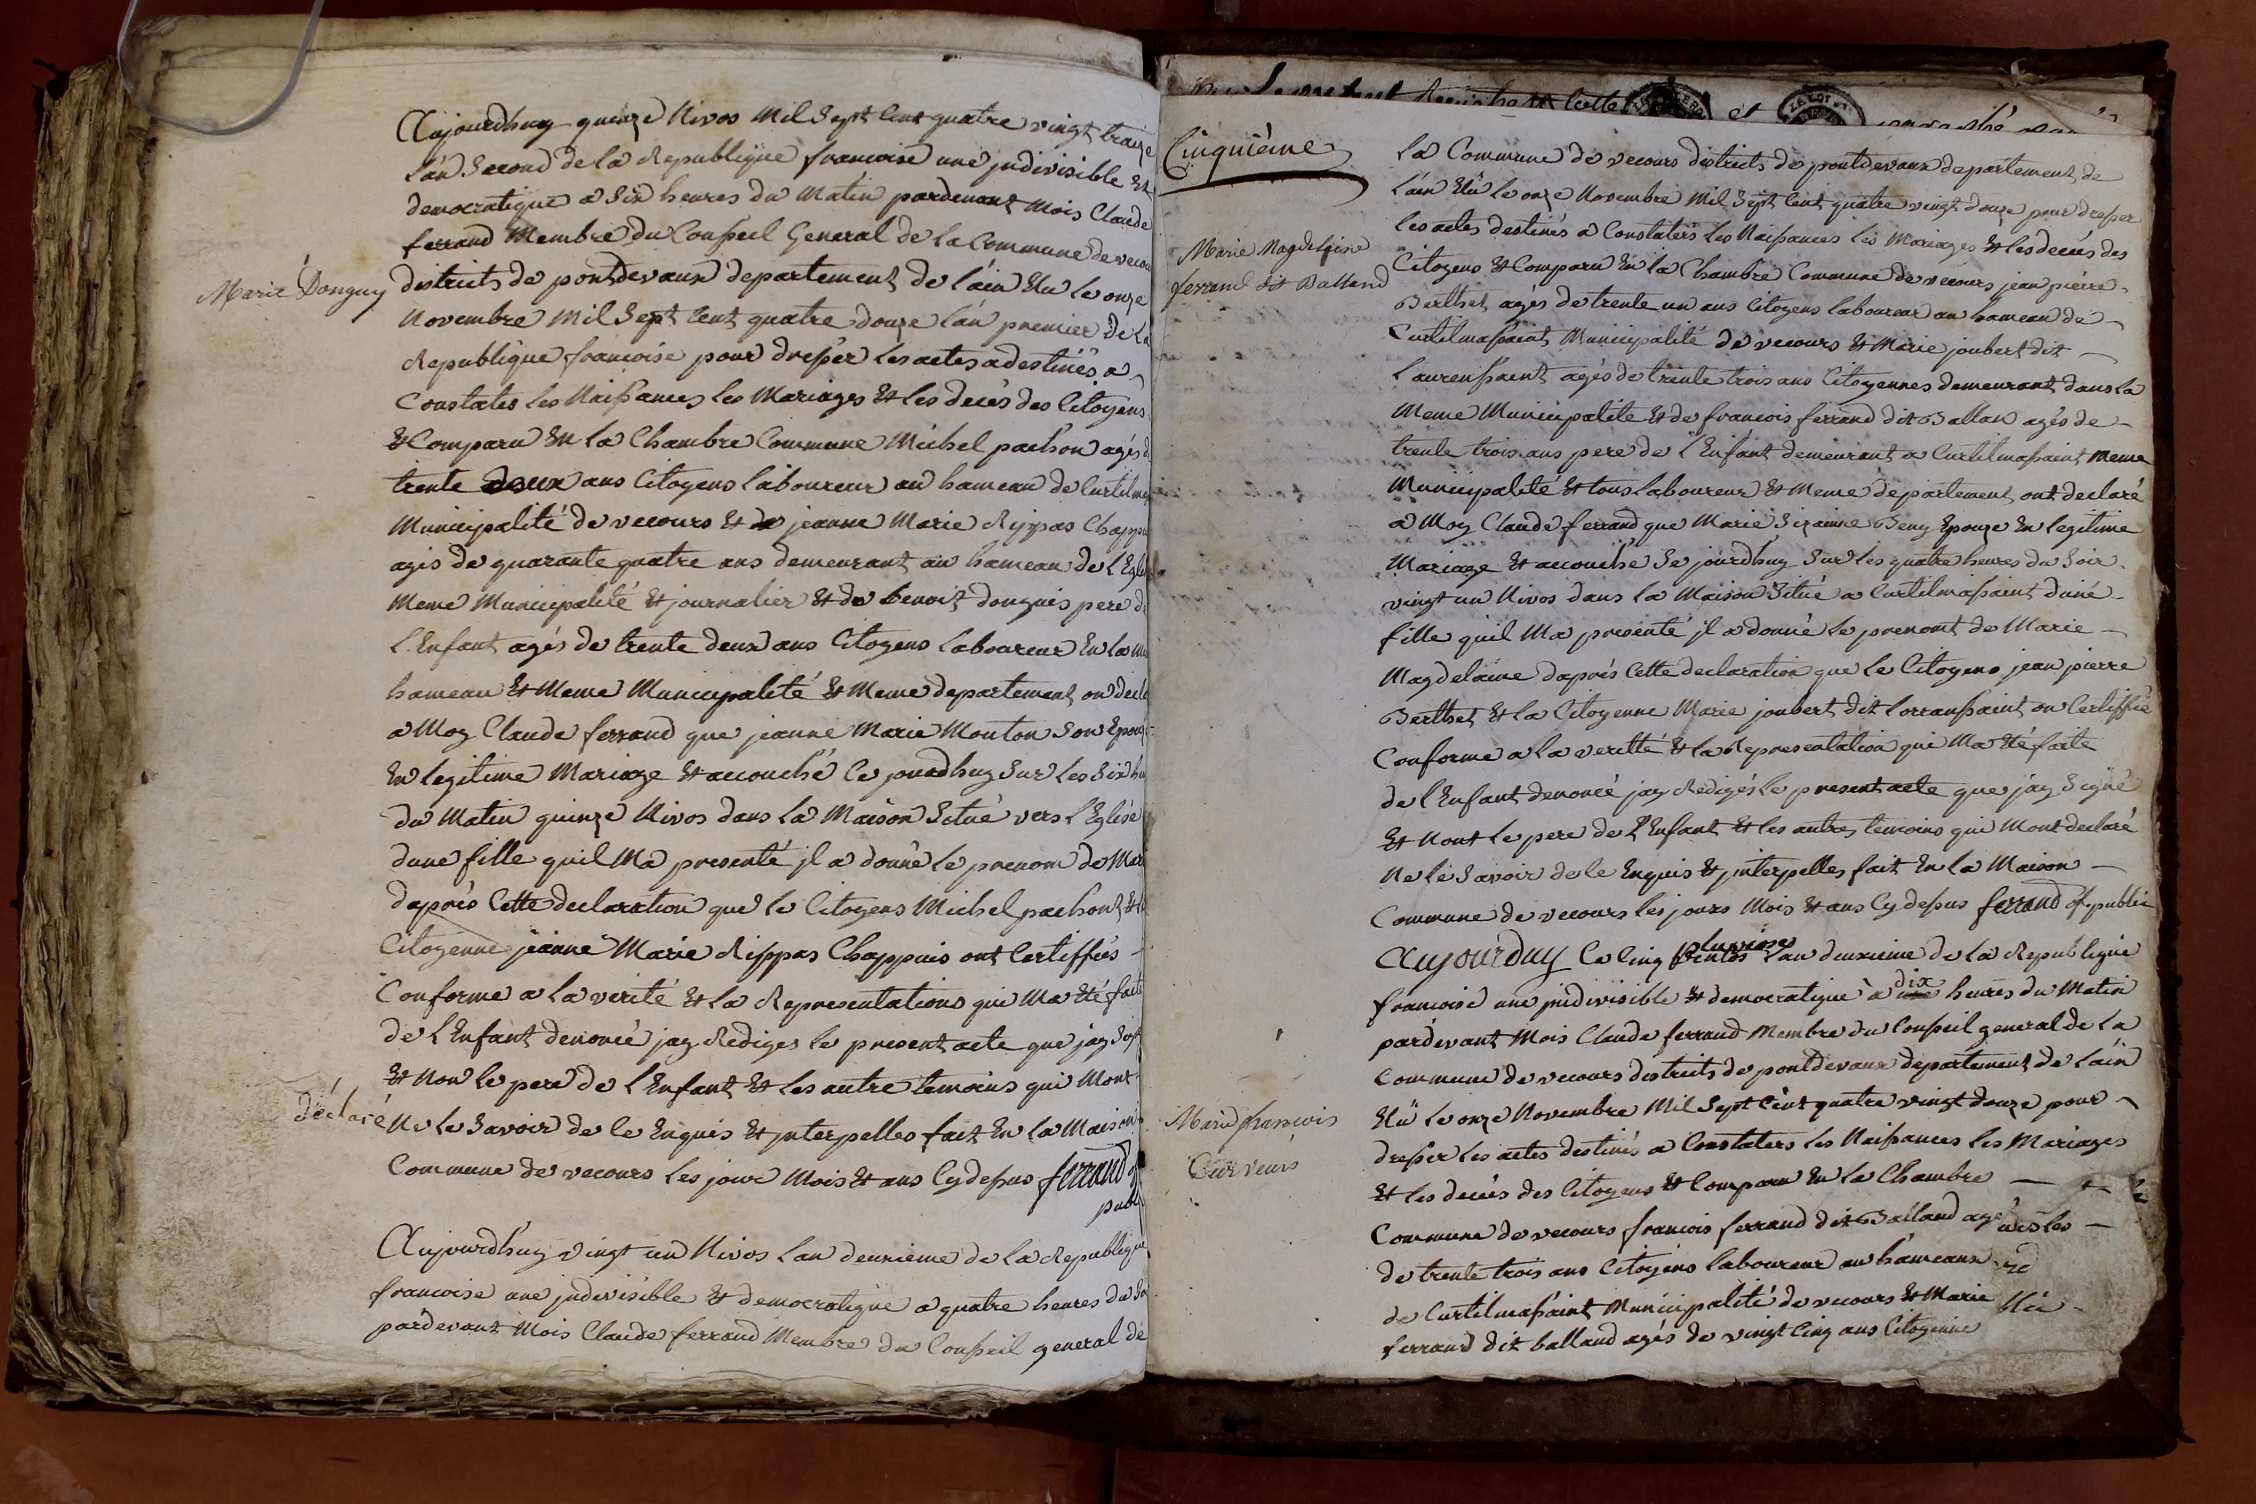 Aujourdhuy quinze Nivos Mil Sept Cent quatre vingt traize
L'án Second de la Republique francoise une jndivisible Et
democratique a Six heures du Matin pardevant Mois Claude
ferrand Membre du Conseil General de la Commune de vecou
Marie Donguy
districts de pontdevaux departement de l'ain Elu le onze
Novembre Mil Sept Cent quatre douze l'án premier de La
Republique francoise pour dresser les actes a destinés a
Constates les Naissances les Mariages Et les decès des Citoyens
Et Comparu En la Chambre Commune Michel pachon agés d
trente deux ans Citoyens laboureur au hameau de Curtilma
Municipalité de vecours Et de jeanne Marie Rippas Chappu
agis de quarante quatre ans demeurant au hameau de l'Egli
Meme Municipalité Et journalier Et de benoit donguis pere d
L'Enfant agés de trente deux ans Citoyens laboureur En la m
hameau Et Meme Municipalité Et Meme departement on decl
a Moy Claude ferrand que jeanne Marie Monton Son Epou
En legitime Mariage Et accouché Ce jourdhuy Sur les Six h
du Matin quinze Nivos dans la Maison Situé vers l'Eglise
dune fille quil Ma presenté jl a donné le prenom de Mar
daprés Cette declaration que le Citoyens Michel pachont Et l
Citoyenne jeanne Marie Rippas Chappuis ont Certiffiés
Conforme a la verité Et la Representations qui Ma Eté fait
de l'Enfant denoncé jay Rediges le present acte que jay Si
Et Non le pere de l'Enfant Et les autre temoins qui Mont
déclaré Ne le Savoir de le Enquis Et jnterpelles fait En la Maison
Commune de vecours les jour Mois Et ans Cy dessus ferrand of
publ
Aujourdhuy vingt un Nivos lan deuxieme de la Republique
francoise une jndivisible Et democratique a quatre heures du So
pardevant Mois Claude ferrand Membre du Conseil general de
Cinquième
la Commune de vecours districts de pontdevaux departement de
l'ain Elû le onze Novembre Mil Sept Cent quatre vingt douze pour dresser
les actes destinés a Constaters les Naissances les Mariages Et les decès des
Marie Magdeleine
ferrand dit Balland
Citoyens Et Comparu En la Chambre Commune de vecours jean pierre
Berthet agés de trente un ans Citoyens laboureur au hameau de
Curtilmassaint Municipalité de vecours Et Marie joubert dit
Laurensaint agés de trente trois ans Citoyennes demeurant dans la
Meme Municipalite Et de francois ferrand dit Ballan agés de
trente trois ans pere de l'Enfant demeurant a Curtilmassaint Meme
Municipalité Et tous laboureur Et Meme departement ont declaré
a Moy Claude ferrand que Marie Sizainne Beny Epouze En legitime
Mariage Et accouché Se jourdhuy Sur les quatre heures du Soir
vingt un Nivos dans la Maison Situé a Curtilmassaint duné
fille quil Ma presenté jl a donné le prenomt de Marie
Magdelaine daprés Cette declaration que le Citoyens jean pierre
Berthet Et la Citoyenne Marie joubert dit Lorransaint on Certiffié
Conforme a la veritté Et la Representation qui Ma Eté faite
de l'Enfant denoncé jay Redigés le present acte que jáy Signé
Et Nont le pere de l'Enfant Et les autres temoins qui Mont declaré
Ne le Savoir de le Enquis Et jnterpelles fait En la Maison
Commune de vecours les jours Mois Et ans Cy dessus ferrand of. public
Aujourduy Ce Cinq pluviose lan deuxieme de la Republique
francoise une jndivisible Et democratique à dix heures du Matin
pardevant Mois Claude ferrand Membre du Conseil general de la
Commune de vecours districts de pontdevaux departement de l'ain
Marie francois
Curveur
Elû le onze Novembre Mil Sept Cent quatre vingt douze pour
dresser les actes destinés a Constaters les Naissances les Mariages
Et les decès des Citoyens Et Comparu En la Chambre
Commune de vecours francois ferrand dit Balland agé
de trente trois ans Citoyéns laboureur au hameaux
de Curtilmassaint Municipalité de vecours Et Marie
ferrand dit balland agés de vingt Cinq ans Citoyenne